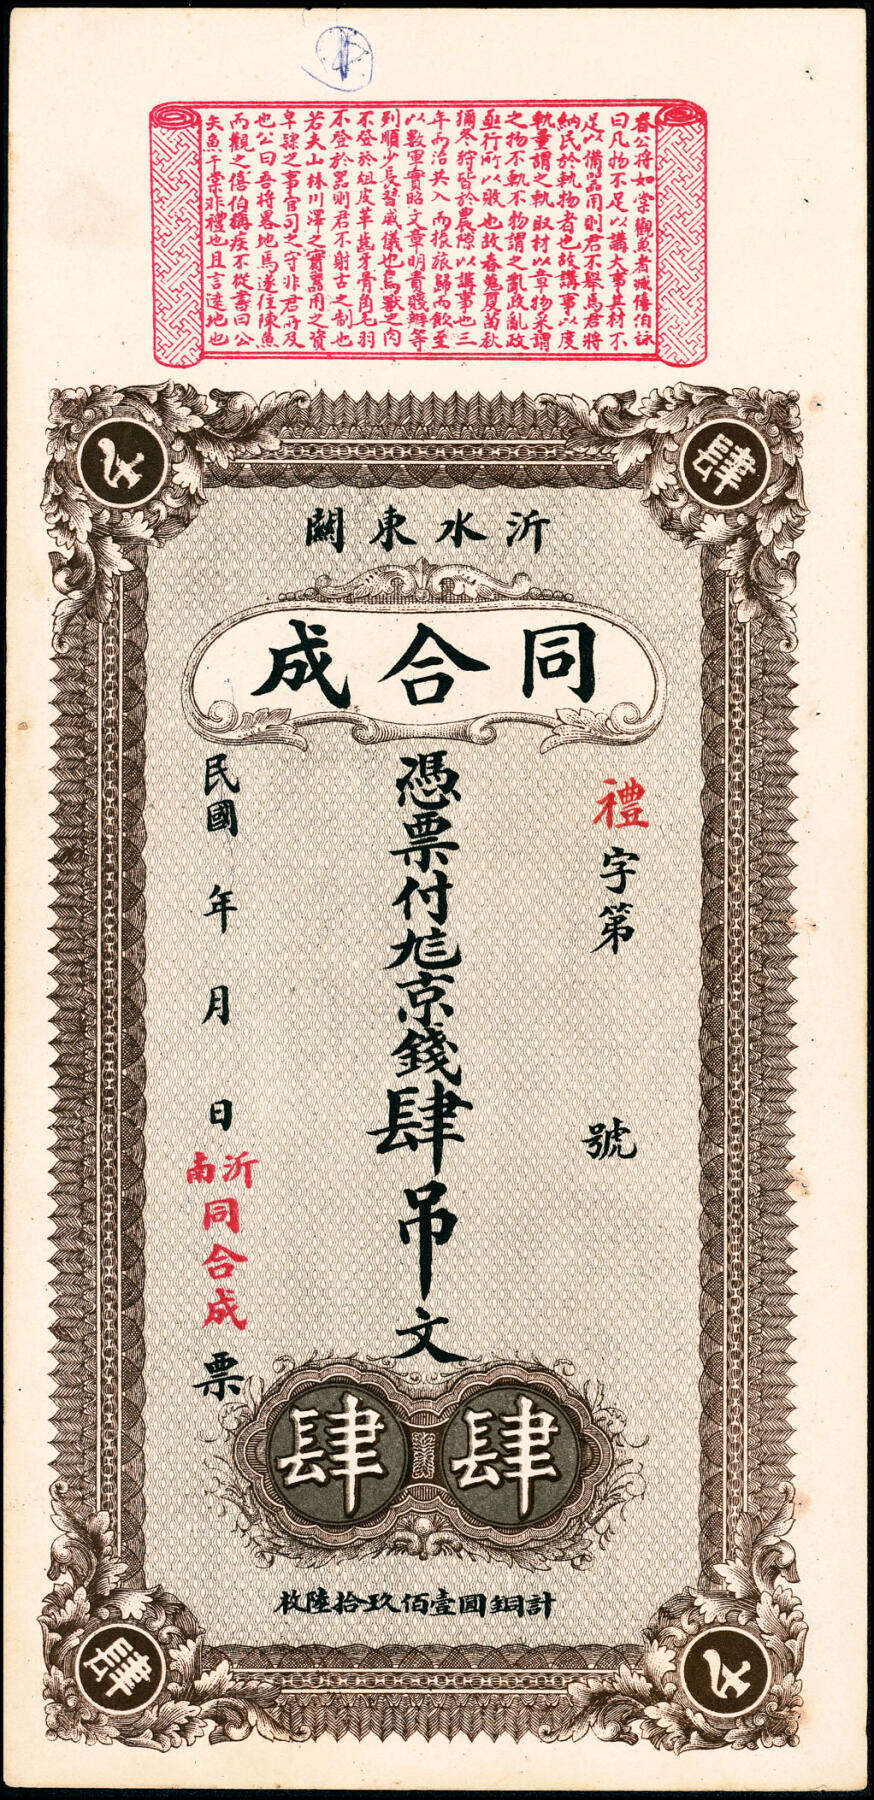 春公將如棠觀魚者臧僖伯諫
曰凡物不足以講大事其材不
足以備器用則君不舉焉君將
納民於軌物者也故講事以度
軌量謂之軌取材以章物采謂
之物不軌不物謂之亂政亂政
亟行所以敗也故春蒐夏苗秋
獮冬狩皆於農隙以講事也三
年而治兵入而振旅歸而飲至
以數軍實昭文章明貴賤辨等
列順少長習威儀也鳥獸之肉
不登於俎皮革齒牙骨角毛羽
不登於器則君不射古之制也
若夫山林川澤之實器用之資
皁隸之事官司之守非君所及
也公曰吾將畧地焉遂往陳魚
而觀之僖伯稱疾不從書曰公
矢魚于棠非禮也且言遠地也
肆
沂水東關
同合成
禮字第 號
憑票付京錢肆吊文
民國 年 月 日
沂南
同合成
票
肆 肆
計銅圓壹佰玖拾陸枚
肆